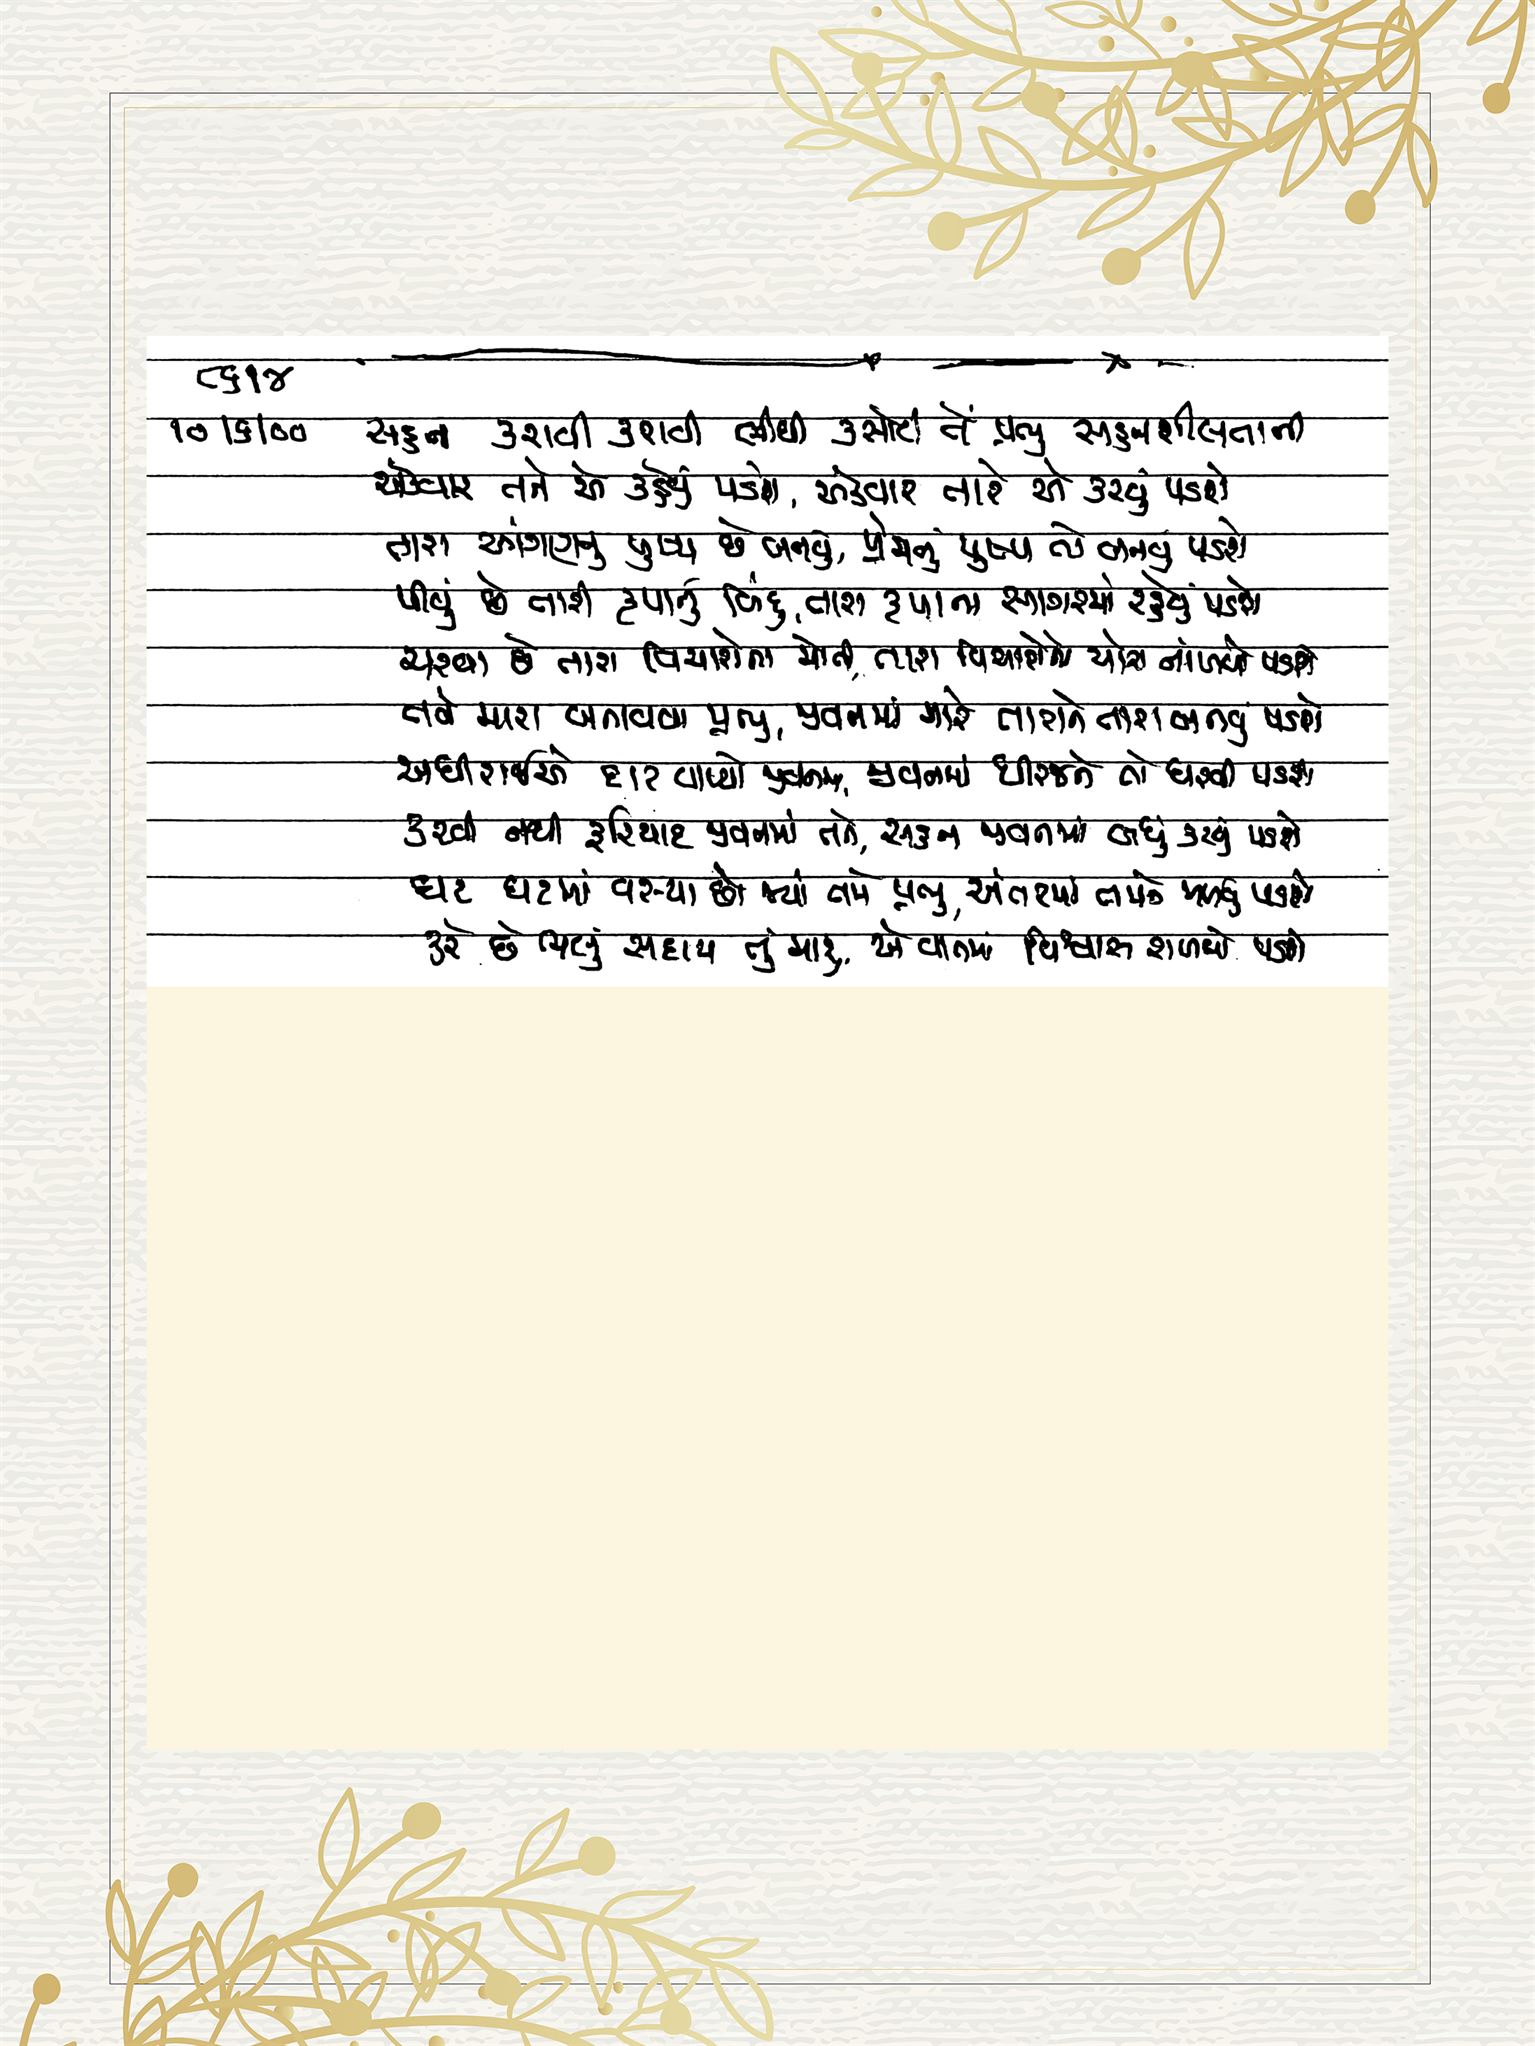 ૮૬૧૪
૧૦/૬/૦૦ સહન કરાવી કરાવી લીધી કસોટી તેં પ્રભુ સહનશીલતાની
એકવાર તને એ કહેવું પડશે, એકવાર તારે એ કરવું પડશે
તારા આંગણાનું પુષ્પ છે બનવું, પ્રેમનું પુષ્પ તો બનવું પડશે
પીવું છે તારી કૃપાનું બિંદુ, તારા કૃપાના સાગરમાં રહેવું પડશે
ચરવા છે તારા વિચારોના મોતી, તારા વિચારોનો ચારો નાંખવો પડશે
તને મારા બનાવવા પ્રભુ, જીવનમાં મારે તારાને તારા બનવું પડશે
અધીરાઈએ દાટ વાળ્યો જીવનમાં, જીવનમાં ધીરજને તો ધરવી પડશે
કરવી નથી ફરિયાદ જીવનમાં તને, સહન જીવનમાં બધું કરવું પડશે
ઘટ ઘટમાં વસ્યા છો જ્યાં તમે પ્રભુ, અંતરમાં તમને મળવું પડશે
કરે છે ભલું સદાય તું મારું, એ વાતમાં વિશ્વાસ રાખવો પડશે